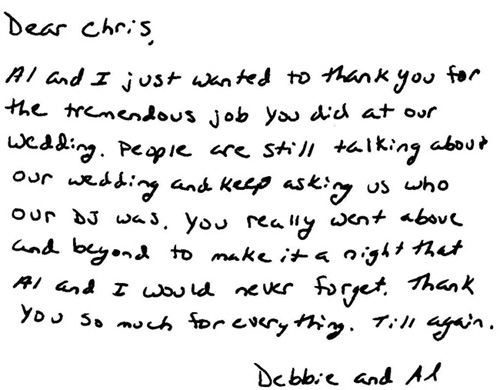 Dear Chris,
Al and I just wanted to thank you for
the tremendous job you did at our
wedding. People are still talking about
our wedding and keep asking us who
our DJ was. You really went above
and beyond to make it a night that
Al and I would never forget. Thank
you so much for everything. Till again.
Debbie and Al